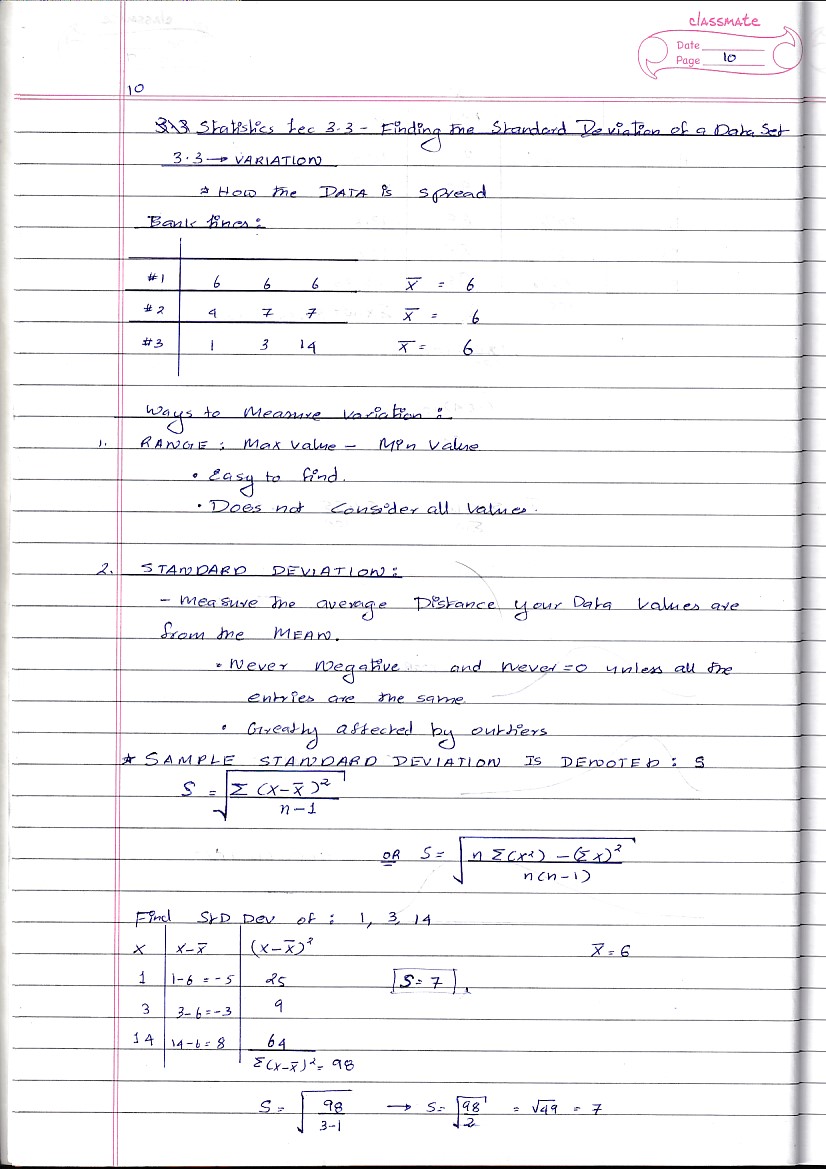 classmate
Date
Page 10
10
Statistics Lec 3.3 - Finding the Standard Deviation of a Data Set
3.3 → VARIATION
* How the DATA is spread
Bank lines:
#1 6 6 6 x̅ = 6
#2 4 7 7 x̅ = 6
#3 1 3 14 x̅ = 6
Ways to Measure variation:
1. RANGE: Max value - Min Value
• Easy to find.
• Does not consider all values.
2. STANDARD DEVIATION:
- Measure the average Distance your Data values are
from the MEAN.
• Never Negative and Never = 0 unless all the
entries are the same
• Greatly affected by outliers
* SAMPLE STANDARD DEVIATION IS DENOTED: S
S = √(Σ(x-x̅)² / n-1)
OR S = √(n Σ(x²) - (Σx)² / n(n-1))
Find Std Dev of: 1, 3, 14
x x-x̅ (x-x̅)² x̅ = 6
1 1-6 = -5 25 S = 7
3 3-6 = -3 9
14 14-6 = 8 64
Σ(x-x̅)² = 98
S = √(98 / 3-1) → S = √(98 / 2) = √49 = 7